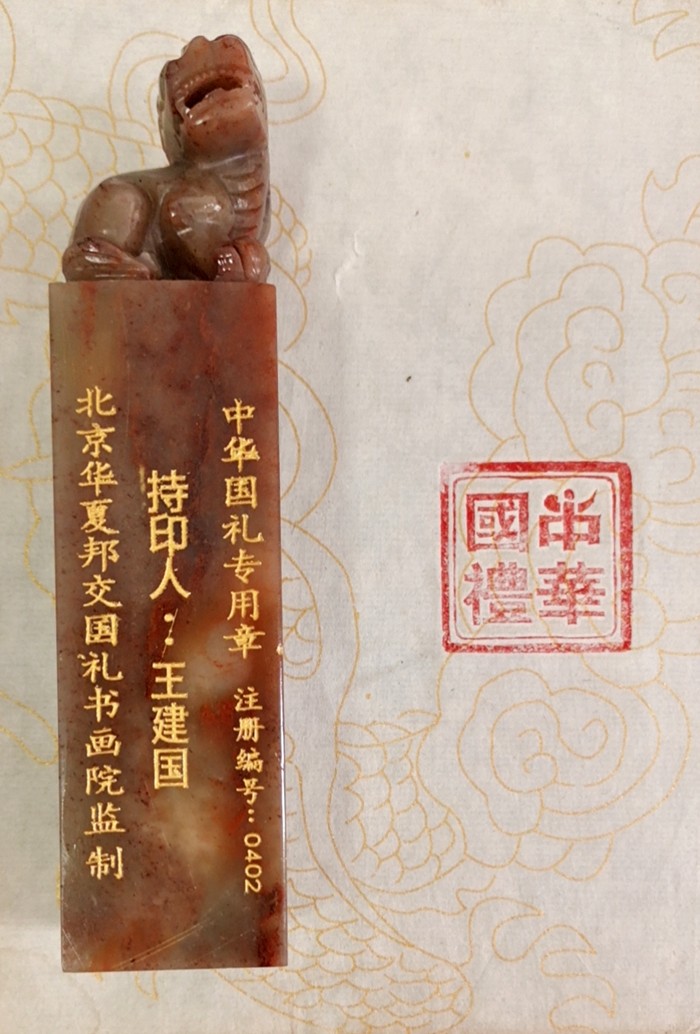 中华国礼专用章 注册编号：0402
持印人：王建国
北京华夏邦交国礼书画院监制
中華
國禮